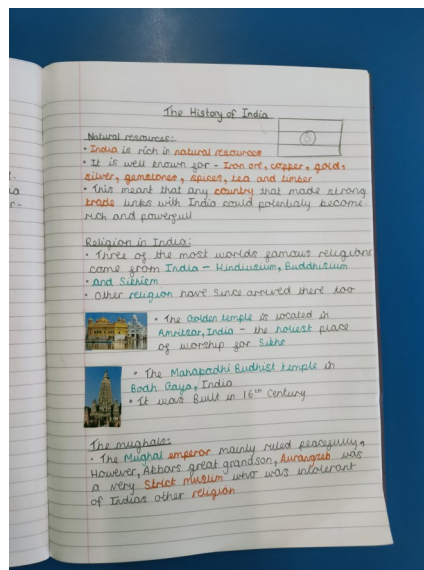 The History of India
Natural resources:-
• India is rich in natural resources
• It is well known for - Iron ore, copper, gold,
silver, gemstones, spices, tea and timber
• This meant that any country that made strong
trade links with India could potentialy become
rich and powerfull
Religion in India:
• Three of the most worlds famous religions
came from India - Hindiusium, Buddhisium
• and Sikhism
• Other religion have since arrived there too
• The Golden temple is located in
Amritsar, India - the holiest place
of worship for Sikhs
• The Mahapadhi Budhist temple in
Bodh Gaya, India
• It was Built in 16th Century
The mughals:
• The Mughal emperor mainly ruled peacefully,
However, Akbars great grandson, Aurangzeb was
a very Strict muslim who was intolerant
of Indias other religion